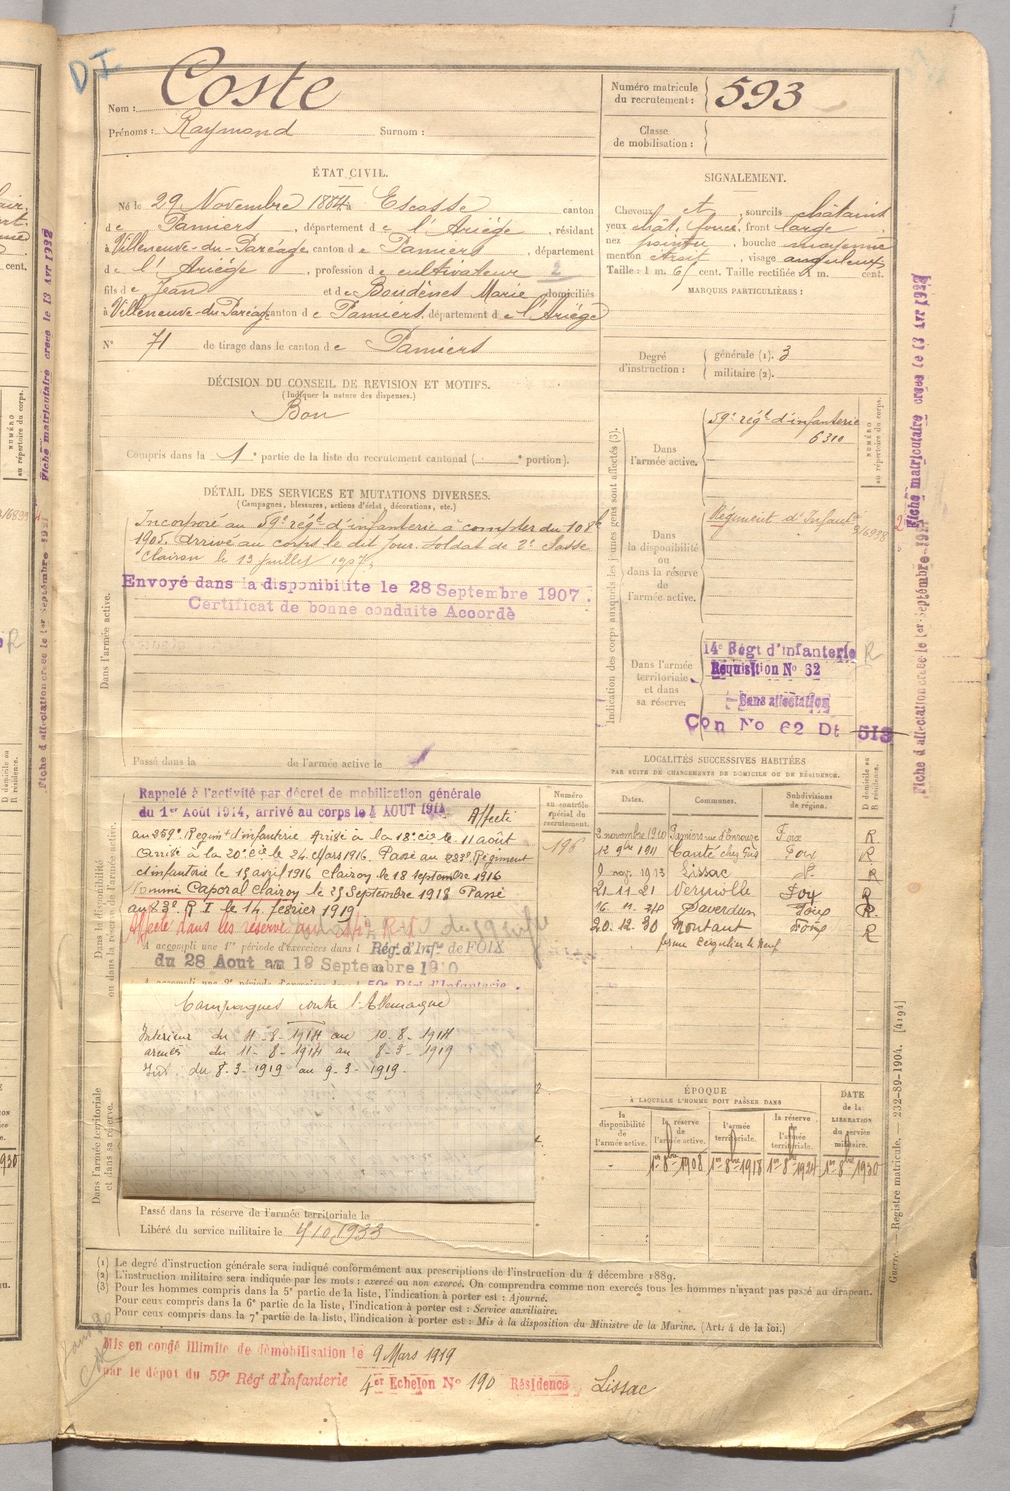 D I
Nom : Coste
Prénoms : Raymond Surnom :
Numéro matricule
du recrutement : 593
Classe
de mobilisation :
ÉTAT CIVIL.
Né le 29 Novembre 1884 à Escosse canton
de Pamiers, département de l'Ariège, résidant
à Villeneuve-du-Paréage, canton de Pamiers, département
de l'Ariège, profession de cultivateur 2
fils de Jean et de Boudènes Marie domiciliés
à Villeneuve-du-Paréage canton de Pamiers, département de l'Ariège
N° 71 de tirage dans le canton de Pamiers
SIGNALEMENT.
Cheveux et, sourcils châtains
yeux chât. foncé, front large
nez pointu, bouche moyenne
menton étroit, visage anguleux
Taille : 1 m. 61 cent. Taille rectifiée 1 m. cent.
MARQUES PARTICULIÈRES :
Degré
d'instruction :
générale (1). 3
militaire (2).
DÉCISION DU CONSEIL DE REVISION ET MOTIFS.
(Indiquer la nature des dispenses.)
Bon
Compris dans la 1e partie de la liste du recrutement cantonal ( e portion).
DÉTAIL DES SERVICES ET MUTATIONS DIVERSES.
(Campagnes, blessures, actions d'éclat, décorations, etc.)
Dans l'armée active.
Incorporé au 59e régt d'infanterie à compter du 10 8bre
1905. Arrivé au corps le dit jour. Soldat de 2e classe
Clairon le 13 juillet 1907.
Envoyé dans la disponibilite le 28 Septembre 1907.
Certificat de bonne conduite Accordè
Passé dans la de l'armée active le
Indication des corps auxquels les jeunes gens sont affectés (3).
NUMÉRO
au répertoire du corps.
Dans
l'armée active.
59e régt d'infanterie
6310
Dans
la disponibilité
ou
dans la réserve
de
l'armée active.
Régiment d'Infant
Dans l'armée
territoriale
et dans
sa réserve.
14e Régt d'infanterie R
Réquisition No 32
Sans affectation
Con No 62 Dt 513
Fiche matriculaire créée le 13 Avr 1932
Fiche d'affectation créée le 1er Septembre 1931
Dans la disponibilité
ou dans la réserve de l'armée active.
Numéro
au contrôle
spécial du
recrutement.
196
Rappelé à l'activité par décret de mobilisation générale
du 1er Août 1914, arrivé au corps le 4 AOUT 1914 Affecté
au 259e Régiment d'infanterie Arrivé à la 18e cie le 11 août
Arrivé à la 20e cie le 24 Mars 1916. Passé au 283e Régiment
d'infanterie le 15 avril 1916 Clairon le 18 septembre 1916
Nommé Caporal Clairon le 25 Septembre 1918 Passé
au 23e R I le 14 février 1919
Affecté dans les réserves au
A accompli une 1re période d'exercices dans l Régt d'Infie de FOIX
du 28 Aout au 19 Septembre 1910
Campagnes contre l'Allemagne
Intérieur du 4-8-1914 au 10.8-1914
armées du 11-8-1914 au 8-3-1919
Int. du 8.3-1919 au 9.3-1919.
Dans l'armée territoriale
et dans sa réserve.
Passé dans la réserve de l'armée territoriale le
Libéré du service militaire le
LOCALITÉS SUCCESSIVES HABITÉES
PAR SUITE DE CHANGEMENTS DE DOMICILE OU DE RÉSIDENCE.
Dates. Communes. Subdivisions
de région. D domicile ou
R résidence.
2 novembre 1910 Pamiers Foix R
12 9bre 1911 Canté Foix R
9 nov. 1913 Lissac d° R
21.11.21 Verniolle Foix R
16.11.28 Saverdun Foix R
20.12.30 Montaut Foix R
ÉPOQUE
À LAQUELLE L'HOMME DOIT PASSER DANS
la
disponibilité
de
l'armée active.
la réserve
de
l'armée active.
l'armée
territoriale.
la réserve
de
l'armée
territoriale.
DATE
de la
LIBÉRATION
du service
militaire.
- 1er 8bre 1908 1er 8bre 1918 1er 8bre 1924 1er 8bre 1930
(1) Le degré d'instruction générale sera indiqué conformément aux prescriptions de l'instruction du 4 décembre 1889.
(2) L'instruction militaire sera indiquée par les mots : exercé ou non exercé. On comprendra comme non exercés tous les hommes n'ayant pas passé au drapeau.
(3) Pour les hommes compris dans la 5e partie de la liste, l'indication à porter est : Ajourné.
Pour ceux compris dans la 6e partie de la liste, l'indication à porter est : Service auxiliaire.
Pour ceux compris dans la 7e partie de la liste, l'indication à porter est : Mis à la disposition du Ministre de la Marine. (Art. 4 de la loi.)
Guerre. — Registre matricule. — 232-89-1904. [4194]
Mis en congé illimité de démobilisation le 9 Mars 1919
par le dépot du 59e Régt d'Infanterie 4er Echelon N° 190 Résidence Lissac